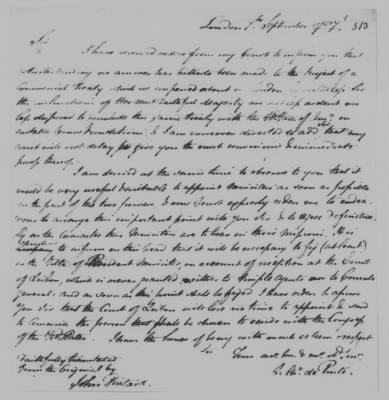 London 7th September 1787. 313
Sir
I have received orders from my Court to inform you that
notwithstanding no answer has hitherto been made to the Project of a
Commercial Treaty which was conferred about in London
the inclinations of Her most Faithful Majesty are not
less disposed to conclude the same treaty with the United States of America on
suitable Foundations; & I am moreover directed to add Sir that my
Court will not delay to give you the most convenient & immediate
proofs thereof.
I am desired at the same time to observe to you that it
would be very useful & suitable to appoint Ministers as soon as possible
on the part of the two Powers & my Court expressly orders me to
arrange this important point with you Sir & to agree definitive-
ly on the Character those Ministers are to bear in their Missions. It is
to inform on this head that it will be necessary to fix (at least)
on the Title of Resident Minister, on account of reception at the Court
of Lisbon, which is never granted neither to Simple Agents nor to Consuls
general: and as soon as this point shall be fixed I have orders to assure
you Sir that the Court of Lisbon will lose no time to appoint & send
to America the person that shall be chosen to reside with the Congress
of the United States. I have the honor of being with much esteem & respect
Sir
Faithfully translated
from the Original by
John Pintard.
Your most hum. & mo. ob. Sr.
de Pinto.